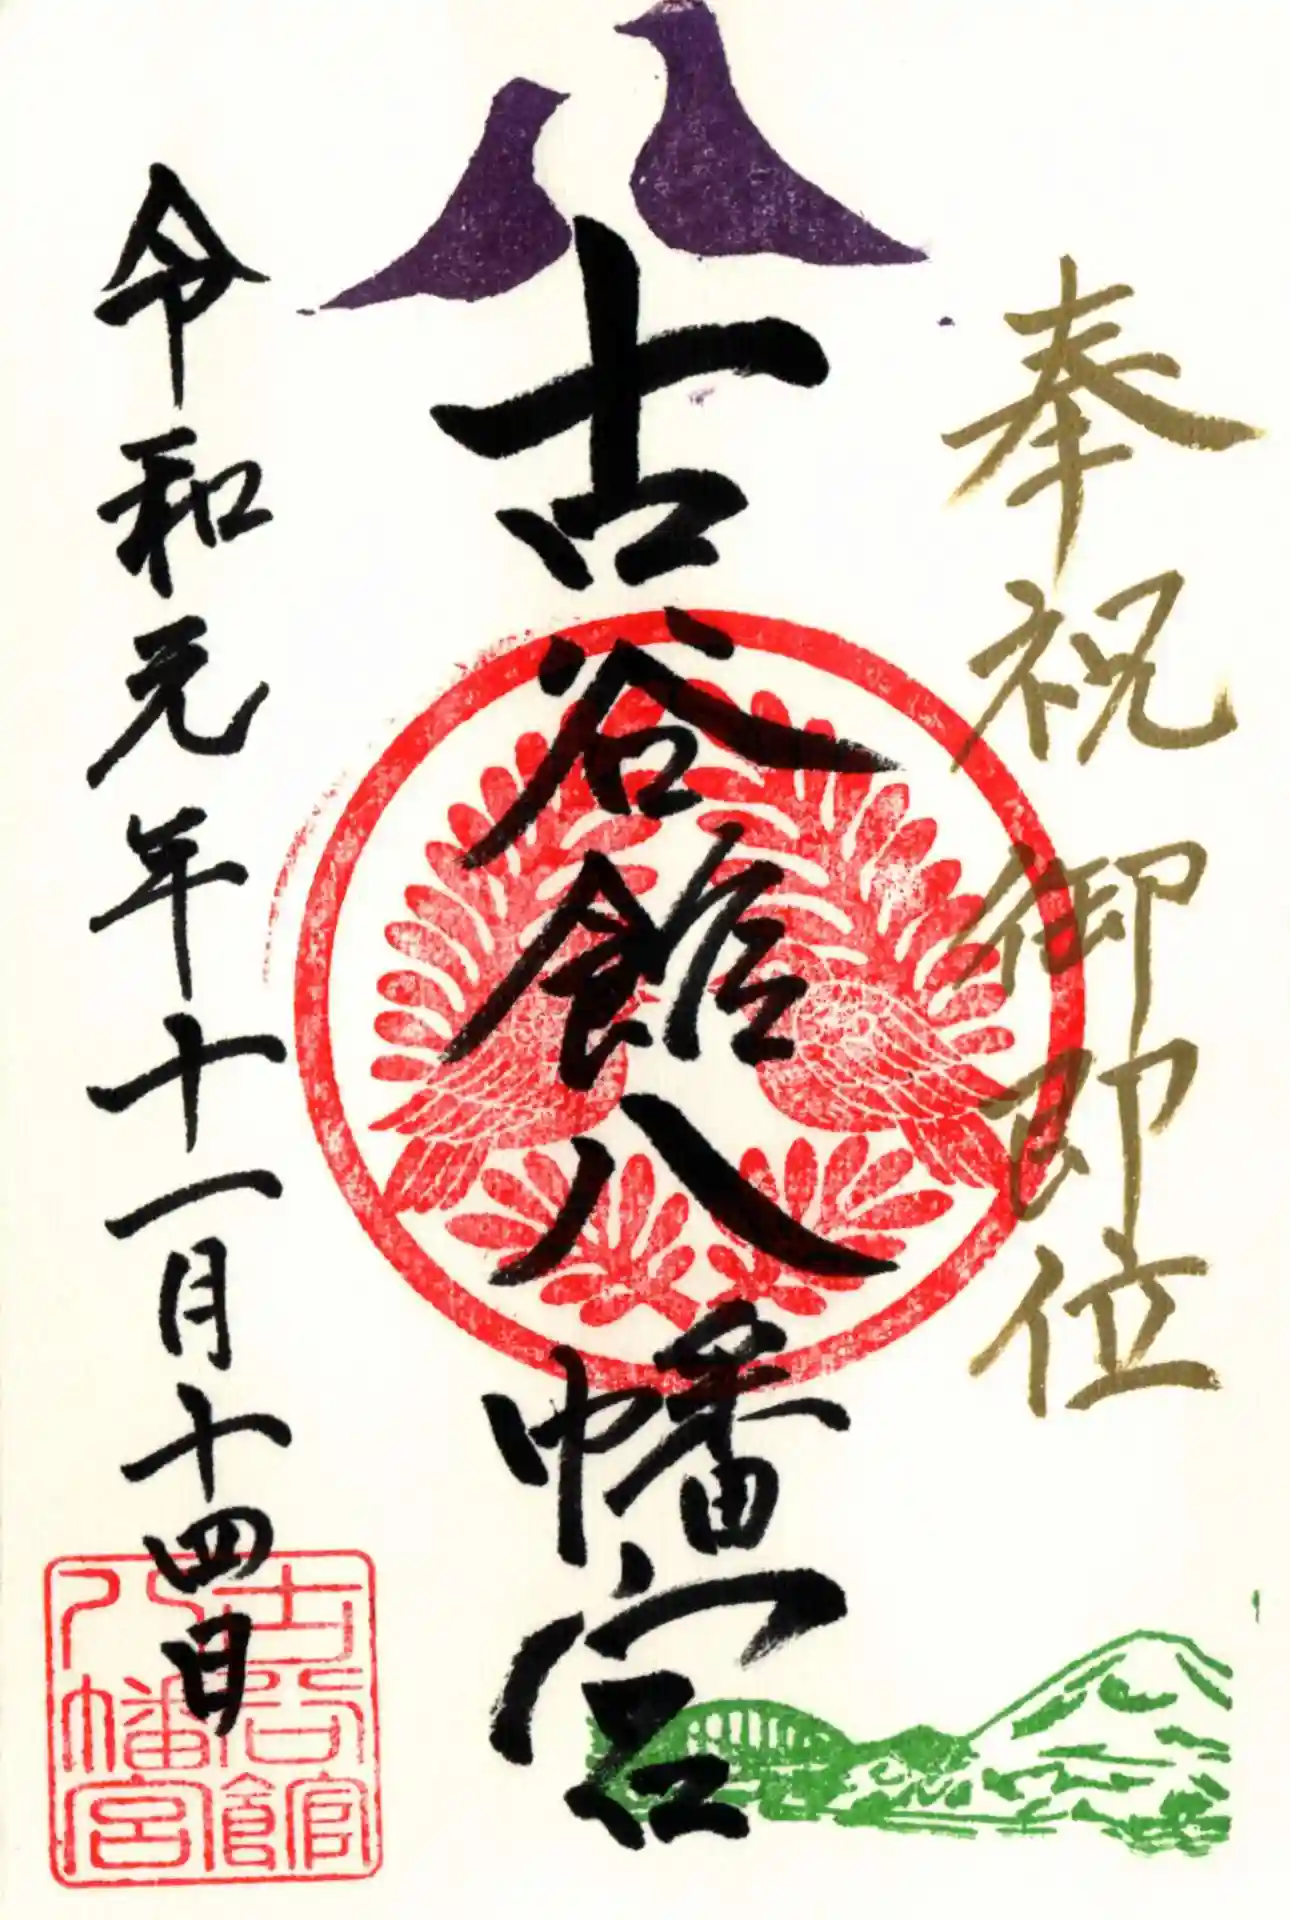 奉祝御即位
古谷館八幡宮
令和元年十一月十四日
古谷館
八幡宮